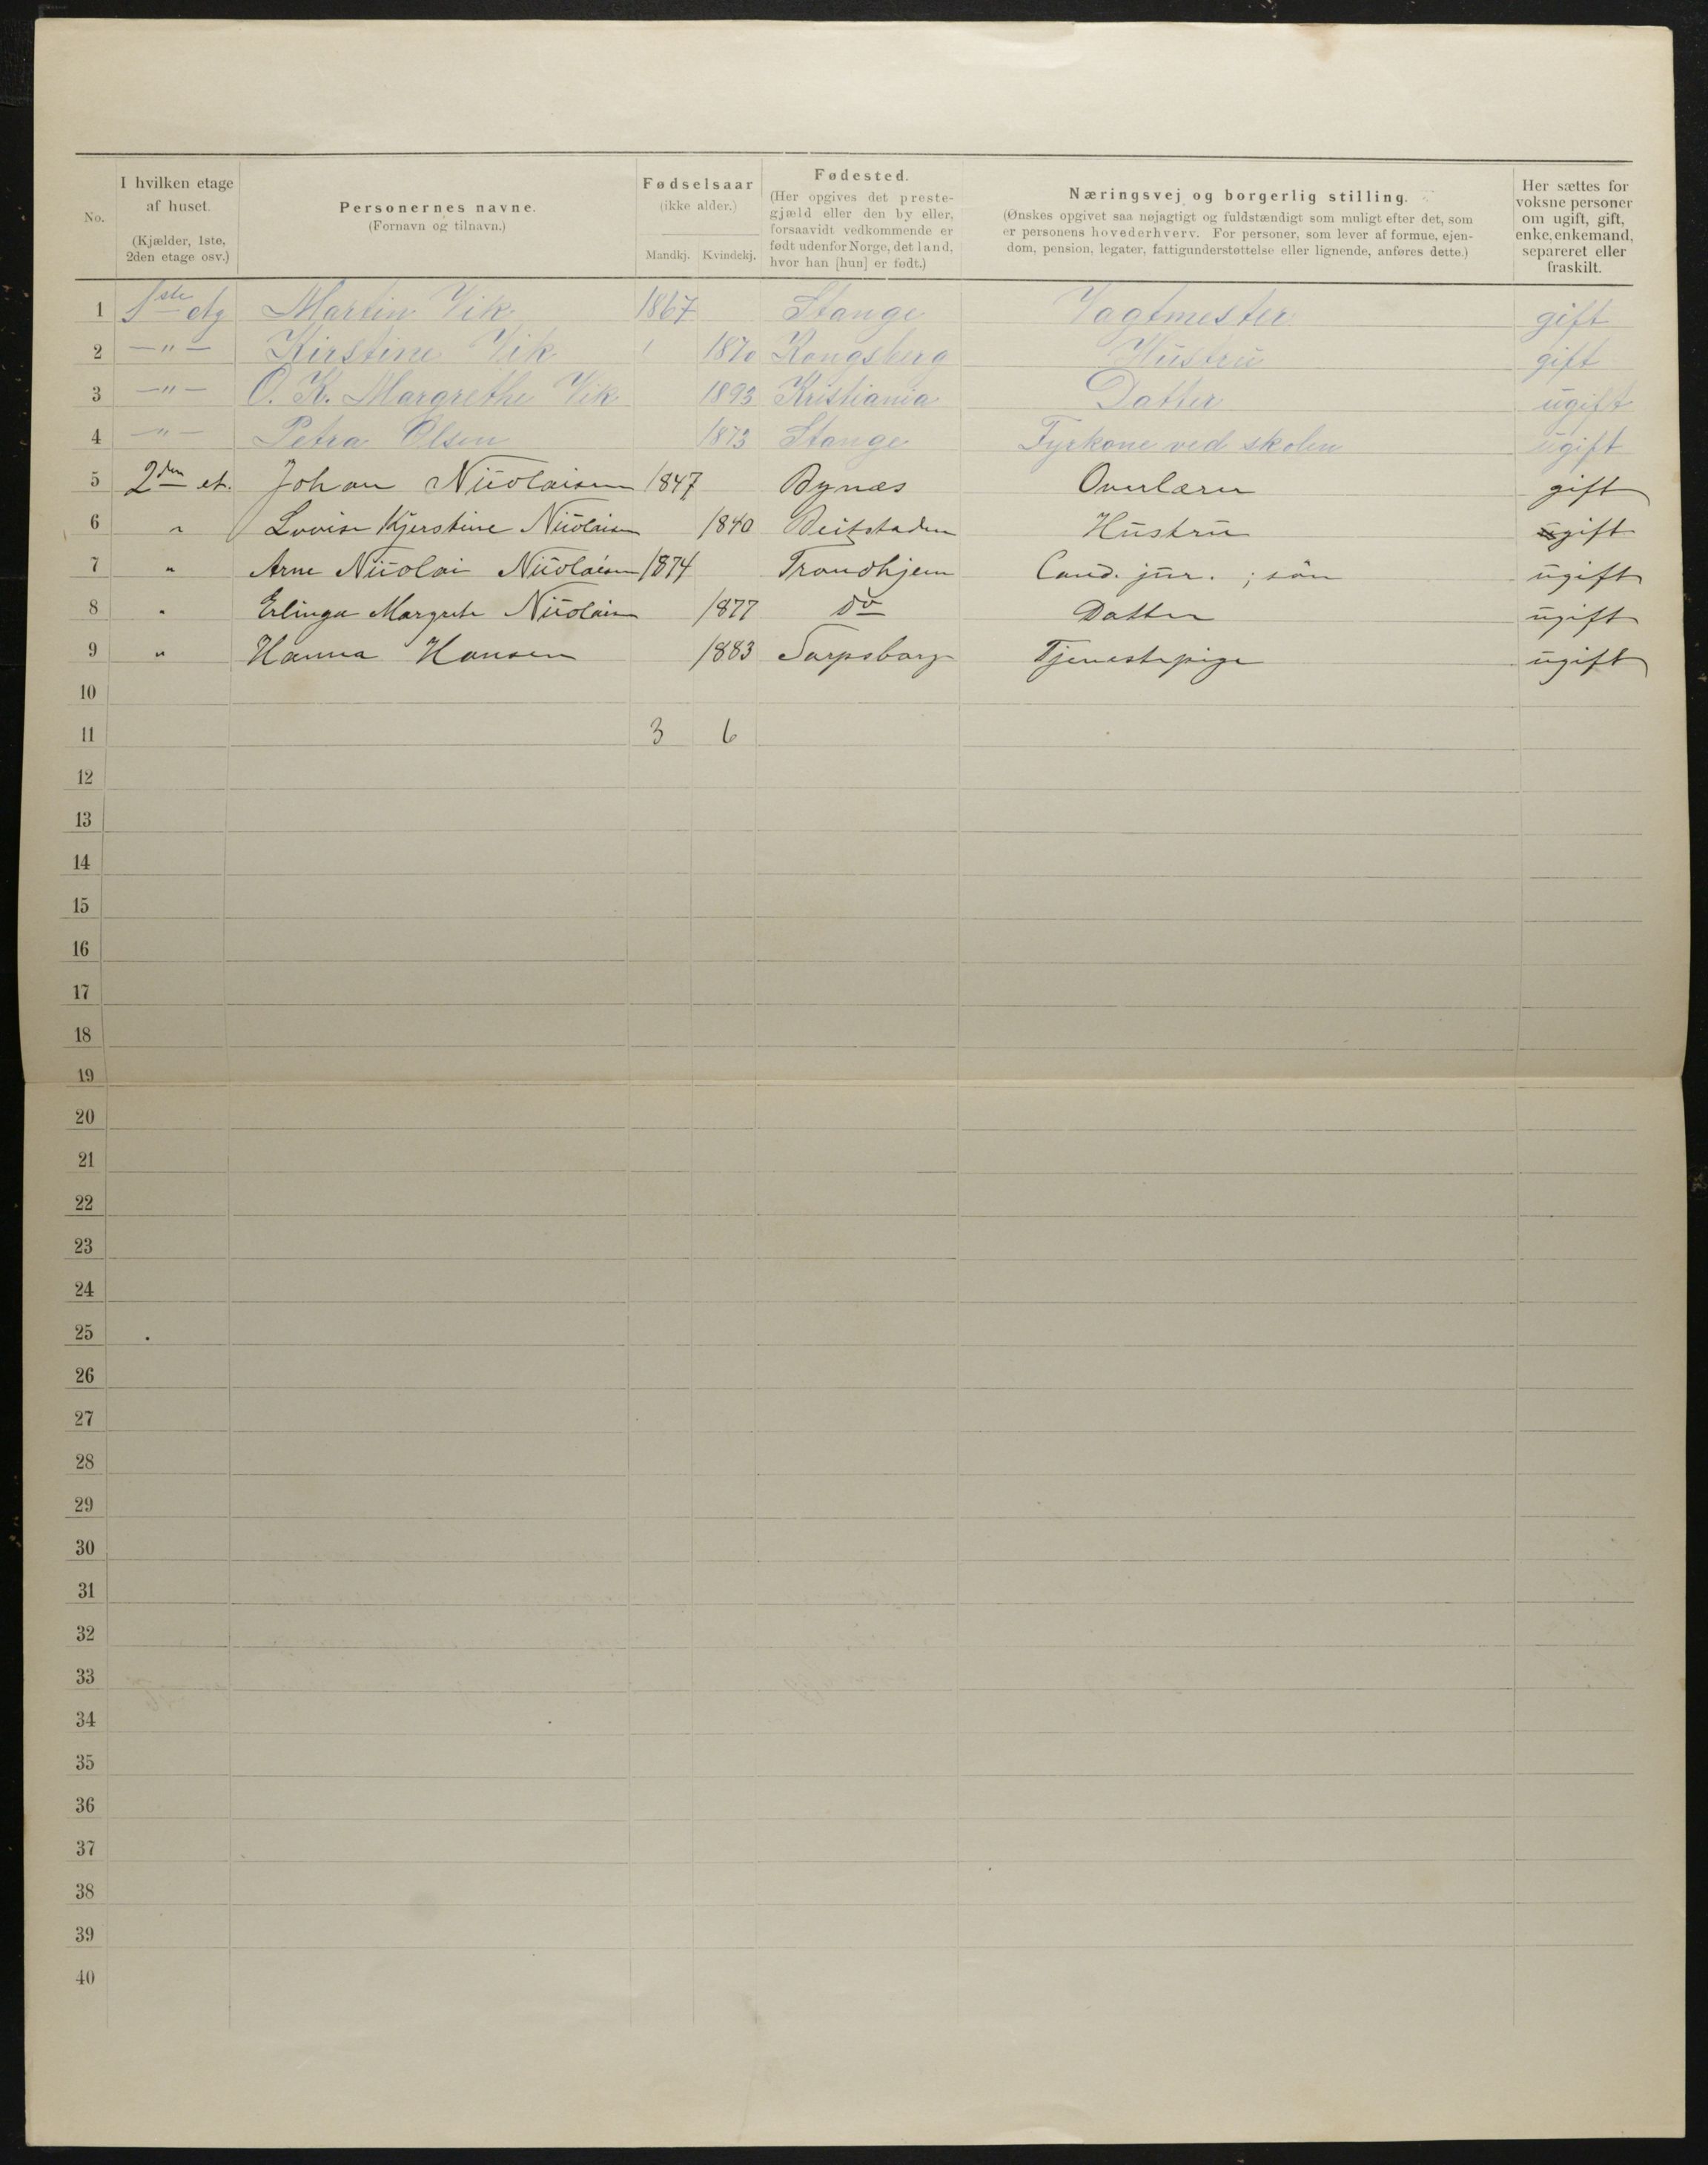 No.
I hvilken etage af huset. (Kjælder, 1ste, 2den etage osv.)
Personernes navne. (Fornavn og tilnavn.)
Fødselsaar (ikke alder.) Mandkj. Kvindekj.
Fødested. (Her opgives det prestegjæld eller den by eller, forsaavidt vedkommende er født udenfor Norge, det land, hvor han [hun] er født.)
Næringsvej og borgerlig stilling. (Ønskes opgivet saa nøjagtigt og fuldstændigt som muligt efter det, som er personens hovederhverv. For personer, som lever af formue, ejendom, pension, legater, fattigunderstøttelse eller lignende, anføres dette.)
Her sættes for voksne personer om ugift, gift, enke, enkemand, separeret eller fraskilt.
1 1ste etg Martin Vik 1867 Stange Vagtmester gift
2 —"— Kirstine Vik 1870 Kongsberg Hustru gift
3 —"— O. K. Margrethe Vik 1893 Kristiania Datter ugift
4 —"— Petra Olsen 1873 Stange Fyrkone ved skolen ugift
5 2den et. Johan Nicolaisen 1847 Bynæs Overlærer gift
6 " Lovise Kjerstine Nicolaisen 1840 Beitstaden Hustru gift
7 " Arne Nicolai Nicolaisen 1874 Trondhjem Cand. jur. ; sön ugift
8 " Erlinga Margrete Nicolaisen 1877 do Datter ugift
9 " Hanna Hansen 1883 Sarpsborg Tjenestepige ugift
10
11 3 6
12
13
14
15
16
17
18
19
20
21
22
23
24
25
26
27
28
29
30
31
32
33
34
35
36
37
38
39
40